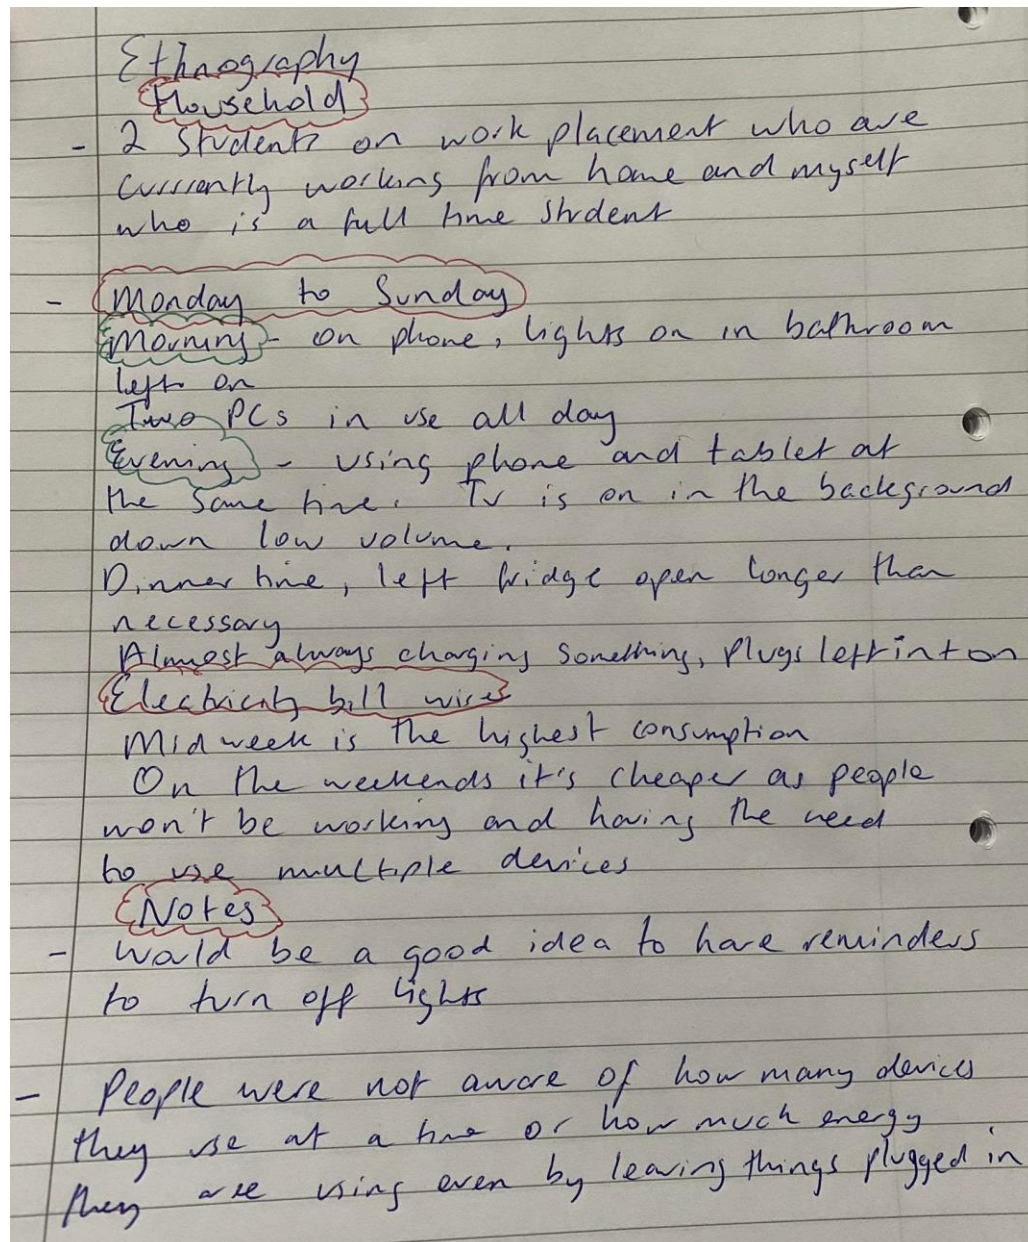 Ethnography
Household
- 2 Students on work placement who are
currently working from home and myself
who is a full time student
- Monday to Sunday
Morning - on phone, lights on in bathroom
left on
Two PCs in use all day
Evening - using phone and tablet at
the same time. Tv is on in the background
down low volume.
Dinner time, left fridge open longer than
necessary
Almost always charging something, plugs left in + on
Electricity bill wise
Midweek is the highest consumption
On the weekends it's cheaper as people
won't be working and having the need
to use multiple devices
Notes
- Would be a good idea to have reminders
to turn off lights
- People were not aware of how many devices
they use at a time or how much energy
they are using even by leaving things plugged in